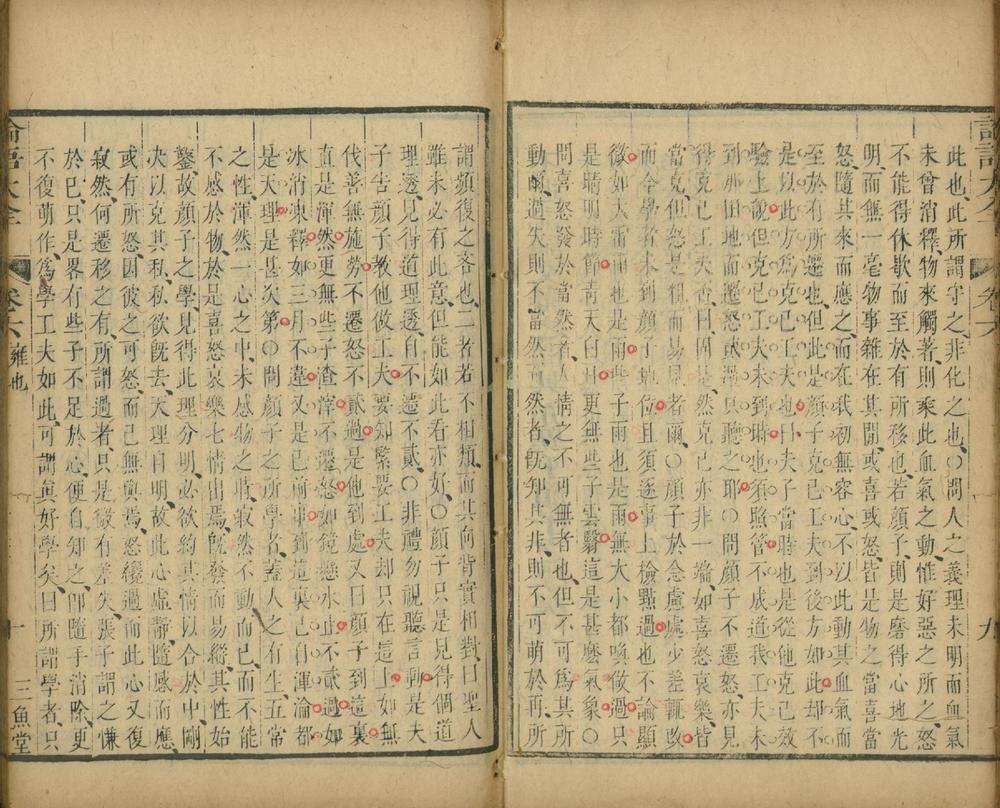 此也此所謂守之非化之也○問人之義理未明而血氣
未曾消釋物來觸著則乘此血氣之動惟好惡之所之怒
不能得休歇而至於有所移也若顏子則是磨得心地光
明而無一毫物事雜在其間或喜或怒皆是物之當喜當
怒隨其來而應之而在我初無容心不以此動其血氣而
至於有所遷也但此是顏子克己工夫到後方如此却不
是以此方為克己工夫也曰夫子當時也是從他克己效
驗上說但克己工夫未到時也須照管不成道我工夫未
到那田地而遷怒貳過只聽之耶○問顏子不遷怒亦見
得克己工夫否曰固是然克己亦非一端如喜怒哀樂皆
當克但怒是粗而易見者爾○顏子於念慮處少差輒改
而今學者未到顏子地位且須逐事上檢點過也不論顯
微如大雷雨也是雨些子雨也是雨無大小都喚做過只
是晴明時節青天白日更無些子雲翳這是甚麽氣象○
問喜怒發於當然者人情之不可無者也但不可為其所
動爾過失則不當然而然者既知其非則不可萌於再所
謂頻復之吝也二者若不相類而其向背實相對曰聖人
雖未必有此意但能如此看亦好○顏子只是見得個道
理透見得道理透自不遷不貳○非禮勿視聽言動是夫
子告顏子教他做工夫要知緊要工夫却只在這上如無
伐善無施勞不遷怒不貳過是他到處又曰顏子到這裏
直是渾然更無些子渣滓不遷怒如鏡懸水止不貳過如
冰消凍釋如三月不違又是已前事到這裏已自渾淪都
是天理是甚次第○問顏子之所學者蓋人之有生五常
之性渾然一心之中未感物之時寂然不動而已而不能
不感於物於是喜怒哀樂七情出焉既發而易縱其性始
鑿故顏子之學見得此理分明必欲約其情以合於中剛
决以克其私私欲既去天理自明故此心虛靜隨感而應
或有所怒因彼之可怒而己無與焉怒纔過而此心又復
寂然何遷移之有所謂過者只是微有差失張子謂之慊
於己只是畧有些子不足於心便自知之卽隨手消除更
不復萌作為學工夫如此可謂眞好學矣曰所謂學者只
論語大全 卷六 雍也 十 三魚堂